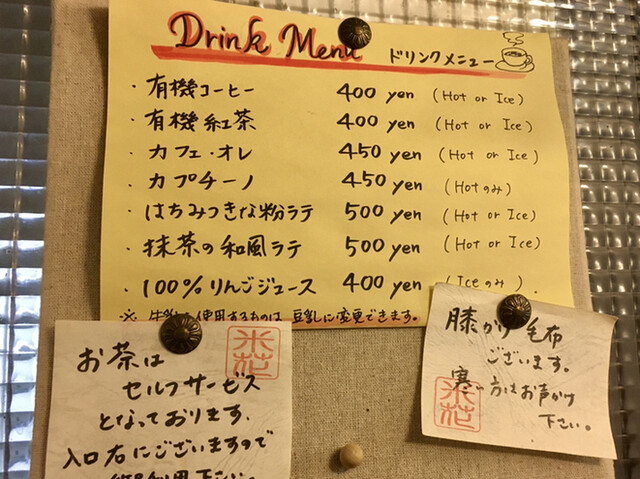 Drink Menu ドリンクメニュー
・有機コーヒー 400 yen (Hot or Ice)
・有機紅茶 400 yen (Hot or Ice)
・カフェ・オレ 450 yen (Hot or Ice)
・カプチーノ 450 yen (Hotのみ)
・はちみつきな粉ラテ 500 yen (Hot or Ice)
・抹茶の和風ラテ 500 yen (Hot or Ice)
・100%りんごジュース 400 yen (Iceのみ).
※ 使用するものは豆乳に変更できます。
お茶は
セルフサービス
となっております.
入口右にございますので
下さい。
米花
膝かけ毛布
ございます。
寒い方はお声かけ
下さい。
米花